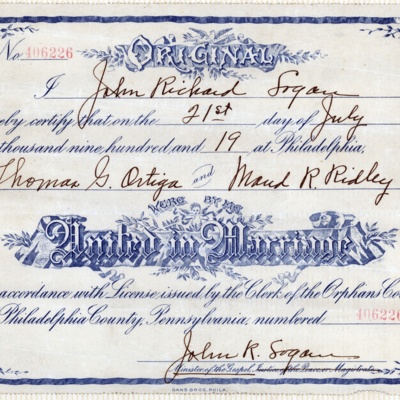 No 406226
ORIGINAL
I John Richard Sogan
eby certify that on the 21st day of July
thousand nine hundred and 19 at Philadelphia,
Thomas G. Ortiga and Maud R. Ridley
WERE BY ME
United in Marriage
accordance with License issued by the Clerk of the Orphans Co
Philadelphia County, Pennsylvania, numbered 406226
John R. Sogan
Minister of the Gospel, Justice of the Peace or Magistrate
GANS BROS. PHILA.